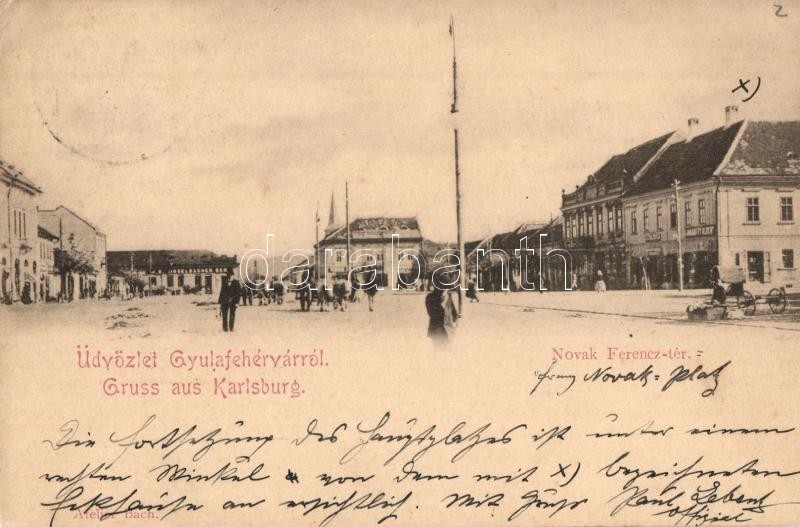 2
x)
darabanth
Üdvözlet Gyulafehérvárról.
Gruss aus Karlsburg.
Novak Ferencz-tér. =
Franz Novak = Platz
Die Fortsetzung des Hauptplatzes ist unter einem
rechten Winkel von dem mit x) bezeichneten
Eckhause an ersichtlich. Mit Gruss Paul
Atelier Bach.